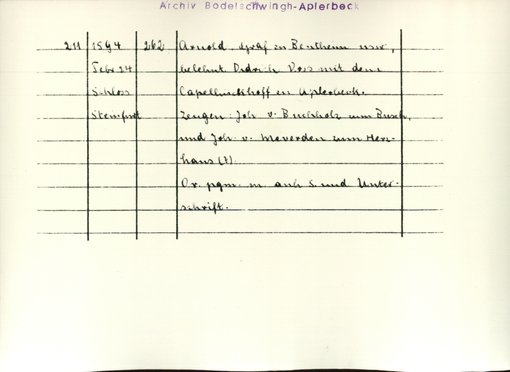 Archiv Bodelschwingh-Aplerbeck
211 1594 262 Arnold, Graf zu Bentheim usw,
Febr 24 belehnt Didrich Voss mit dem
Schloss Capellenckhoff in Aplerbeck.
Steinfurt Zeugen: Joh. v. Buchholz zum Busch,
und Joh. v. Meverden zum Herz-
haus (?)
Or. pgm. m. anh S. und Unter-
schrift.